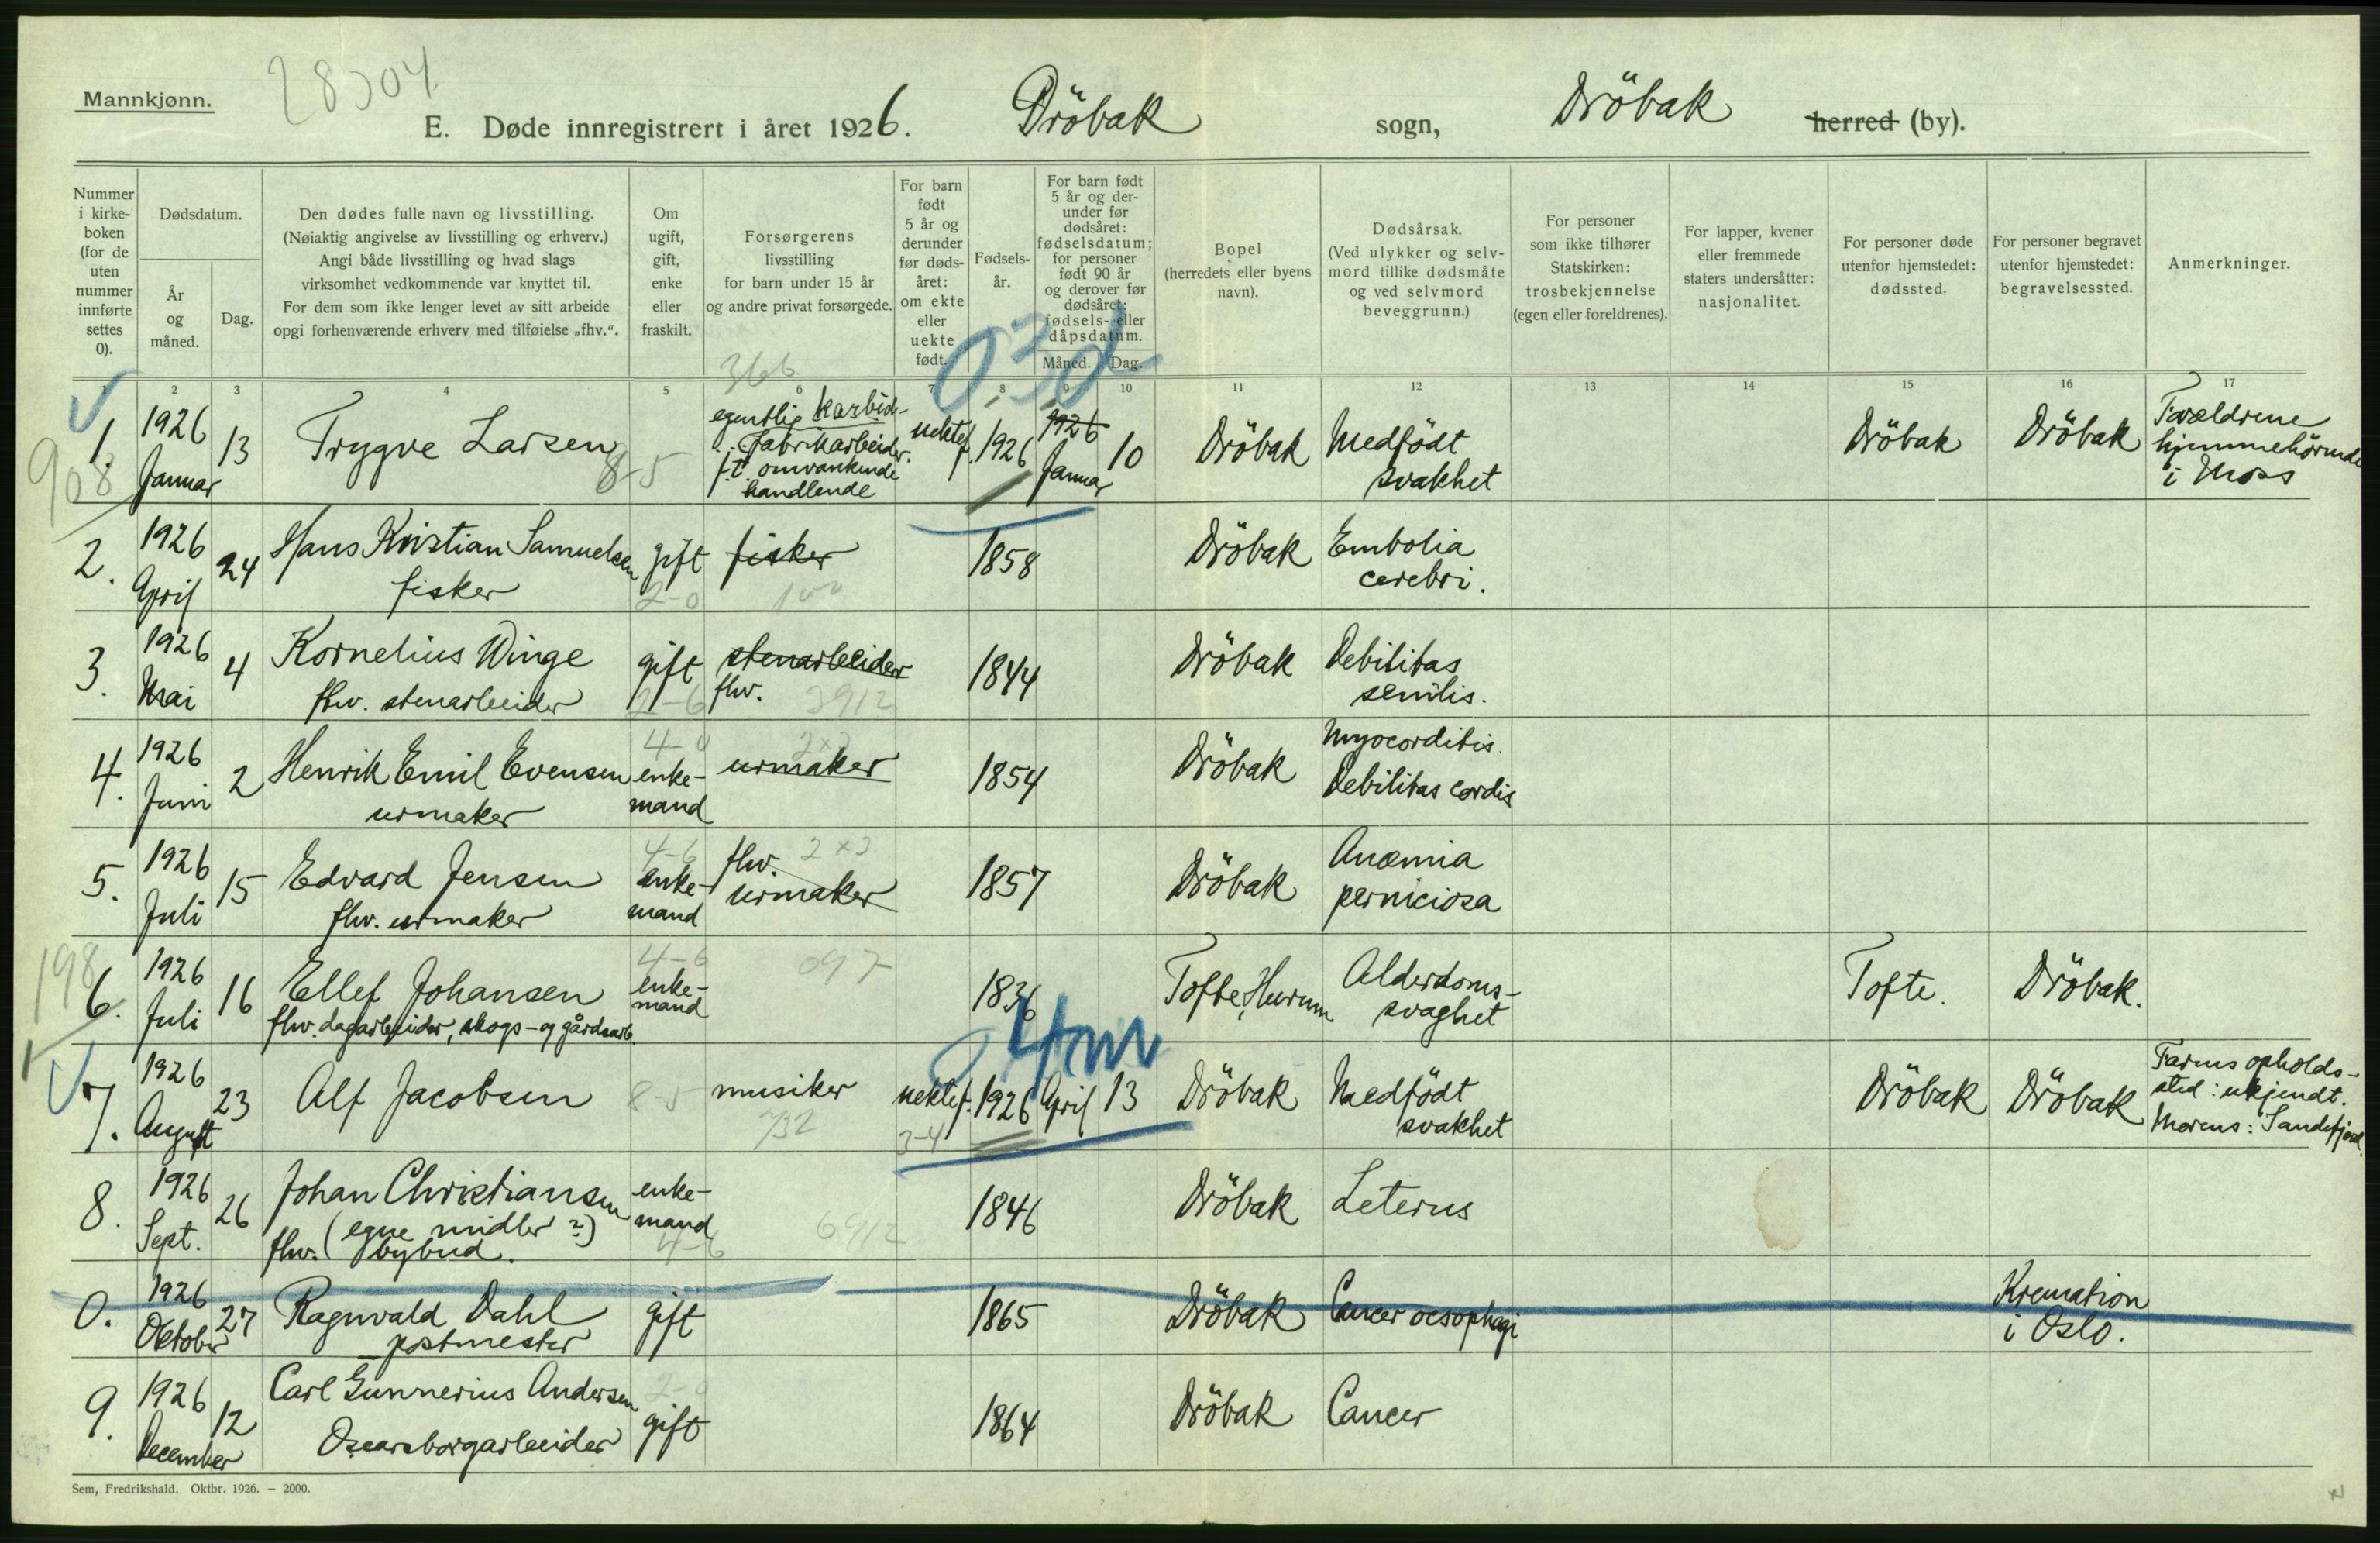 Mannkjønn.
28304
E. Døde innregistrert i året 1926. Dröbak sogn, Dröbak herred (by).
Nummer i kirke-boken (for de uten nummer innførte settes 0).
Dødsdatum.
År og måned.
Dag.
Den dødes fulle navn og livsstilling.
(Nøiaktig angivelse av livsstilling og erhverv.)
Angi både livsstilling og hvad slags
virksomhet vedkommende var knyttet til.
For dem som ikke lenger levet av sitt arbeide
opgi forhenværende erhverv med tilføielse „fhv.“.
Om ugift, gift, enke eller fraskilt.
Forsørgerens livsstilling for barn under 15 år og andre privat forsørgede.
For barn født 5 år og derunder før døds-året: om ekte eller uekte født.
Fødsels-år.
For barn født 5 år og der-under før dødsåret: fødselsdatum; for personer født 90 år og derover før dødsåret: fødsels- eller dåpsdatum.
Måned. Dag.
Bopel (herredets eller byens navn).
Dødsårsak. (Ved ulykker og selv-mord tillike dødsmåte og ved selvmord beveggrunn.)
For personer som ikke tilhører Statskirken: trosbekjennelse (egen eller foreldrenes).
For lapper, kvener eller fremmede staters undersåtter: nasjonalitet.
For personer døde utenfor hjemstedet: dødssted.
For personer begravet utenfor hjemstedet: begravelsessted.
Anmerkninger.
1 2 3 4 5 6 7 8 9 10 11 12 13 14 15 16 17
366
0,3d
1. 1926 Januar 13 Trygve Larsen 8-5 egentlig karbid-fabrikarbeider. f.t. omvankende handlende uektef. 1926 1926 Januar 10 Dröbak Medfödt svakhet Dröbak Dröbak Forældrene hjemmehörende i Moss
908
2. 1926 April 24 Hans Kristian Samuelsen fisker gift 2-0 fisker 100 1858 Dröbak Embolia cerebri.
3. 1926 Mai 4 Kornelius Winge fhv. stenarbeider gift 2-6 stenarbeider fhv. 3912 1844 Dröbak Debilitas senilis.
4. 1926 Juni 2 Henrik Emil Evensen urmaker 4-0 enke-mand urmaker 1854 Dröbak Myocorditis. Debilitas cordis
5. 1926 Juli 15 Edvard Jensen fhv. urmaker 4-6 enke-mand fhv. urmaker 1857 Dröbak Anæmia perniciosa
198
6. 1926 Juli 16 Ellef Johansen fhv. dagarbeider, skogs- og gårdsarb. 4-6 enke-mand 097 1836 Tofte, Hurum Alderdoms-svaghet Tofte. Dröbak.
4m
7. 1926 August 23 Alf Jacobsen 8-5 musiker 732 uektef. 3-4 1926 April 13 Dröbak Medfödt svakhet Dröbak Dröbak Farens opholds-sted: ukjendt. Morens: Sandefjord.
8. 1926 Sept. 26 Johan Christiansen fhv. (egne midler?) bybud. enke-mand 4-6 6912 1846 Dröbak Leterus
0. 1926 Oktober 27 Ragnvald Dahl postmester gift 1865 Dröbak Cancer oesophagi Kremation i Oslo.
9. 1926 December 12 Carl Gunnerius Andersen Oscarsborgarbeider 2-0 gift 1864 Dröbak Cancer
Sem, Fredrikshald. Oktbr. 1926. — 2000.